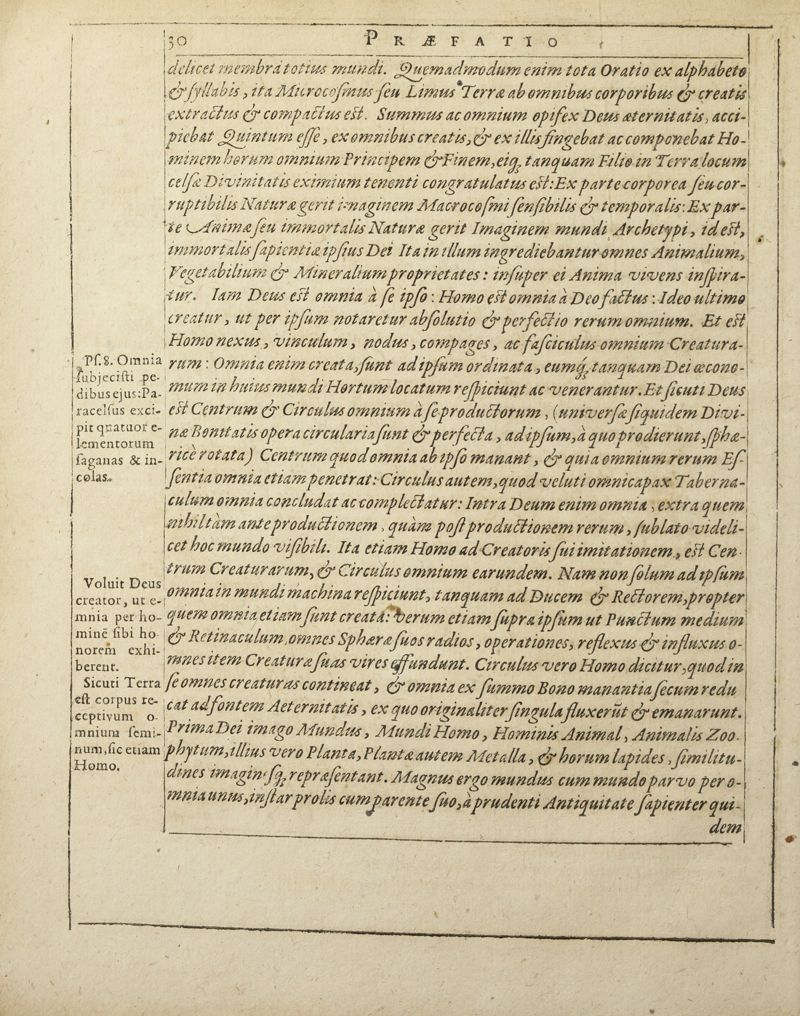 30 PRÆFATIO
delicet membra totius mundi. Quemadmodum enim tota Oratio ex alphabeto
& syllabis, ita Microcosmus seu Limus Terræ ab omnibus corporibus & creatis
extractus & compactus est. Summus ac omnium opifex Deus æternitatis, acci-
piebat Quintum esse, ex omnibus creatis, & ex illis fingebat ac componebat Ho-
minem horum omnium Principem & Finem, eiq; tanquam Filio in Terra locum
celsæ Divinitatis eximium tenenti congratulatus est: Ex parte corporea seu cor-
ruptibilis Naturæ gerit imaginem Macrocosmi sensibilis & temporalis: Ex par-
te Animæ seu immortalis Naturæ gerit Imaginem mundi Archetypi, id est,
immortalis sapientiæ ipsius Dei Ita in illum ingrediebantur omnes Animalium,
Vegetabilium & Mineralium proprietates: insuper ei Anima vivens inspira-
tur. Iam Deus est omnia à se ipso: Homo est omnia à Deo factus: Ideo ultimo
creatur, ut per ipsum notaretur absolutio & perfectio rerum omnium. Et est
Homo nexus, vinculum, nodus, compages, ac fasciculus omnium Creatura-
rum: Omnia enim creata, sunt ad ipsum ordinata, eumq; tanquam Dei œcono-
mum in huius mundi Hortum locatum respiciunt ac venerantur. Et sicuti Deus
est Centrum & Circulus omnium à se productorum, (universæ siquidem Divi-
næ Bonitatis opera circularia sunt & perfecta, ad ipsum, à quo prodierunt, sphæ-
ricè rotata) Centrum quod omnia ab ipso manant, & quia omnium rerum Es-
sentia omnia etiam penetrat: Circulus autem, quod veluti omnicapax Taberna-
culum omnia concludat ac complectatur: Intra Deum enim omnia, extra quem
nihil tàm ante productionem, quàm post productionem rerum, sublato videli-
cet hoc mundo visibili. Ita etiam Homo ad Creatoris sui imitationem, est Cen-
trum Creaturarum, & Circulus omnium earundem. Nam non solum ad ipsum
omnia in mundi machina respiciunt, tanquam ad Ducem & Rectorem, propter
quem omnia etiam sunt creata: Verum etiam supra ipsum ut Punctum medium
& Retinaculum, omnes Sphæræ suos radios, operationes, reflexus & influxus o-
mnes item Creaturæ suas vires effundunt. Circulus vero Homo dicitur, quod in
se omnes creaturas contineat, & omnia ex summo Bono manantia secum redu
cat ad fontem Aeternitatis, ex quo originaliter singula fluxerūt & emanarunt.
Prima Dei imago Mundus, Mundi Homo, Hominis Animal, Animalis Zoo-
phytum, illius vero Planta, Plantæ autem Metalla, & horum lapides, similitu-
dines imaginesq; repræsentant. Magnus ergo mundus cum mundo parvo per o-
mnia unus, instar prolis cum parente suo, à prudenti Antiquitate sapienter qui-
dem
Ps. 8. Omnia
subjecisti pe-
dibus ejus: Pa-
racelsus exci-
pit quatuor e-
lementorum
saganas & in-
colas.
Voluit Deus
creator, ut o-
mnia per ho-
minē sibi ho
norem exhi-
berent.
Sicuti Terra
est corpus re-
ceptivum o-
mnium semi-
num, sic etiam
Homo.